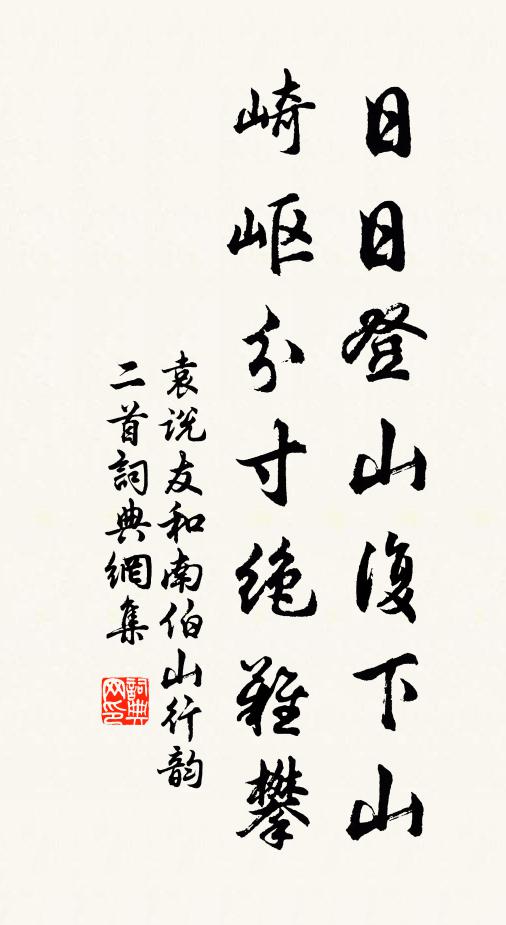 日日登山復下山
崎岖分寸绝難攀
袁说友和南伯山行韵
二首詞典網集
詞典
网印